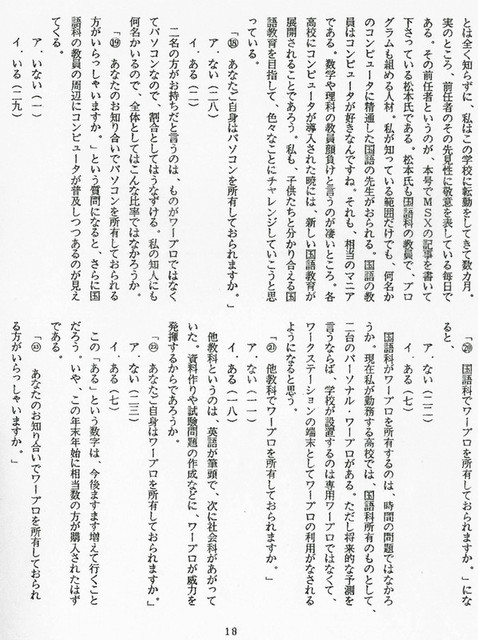 とは全く知らずに、私はこの学校に転勤をしてきて数カ月。
実のところ、前任者のその先見性に敬意を表している毎日で
ある。その前任者というのが、本号でMSXの記事を書いて
下さっている松本氏である。松本氏も国語科の教員で、プロ
グラムも組める人材。私が知っている範囲だけでも、何名か
のコンピュータに精通した国語の先生がおられる。国語の教
員はコンピュータが好きなんですね。それも、相当のマニア
である。数学や理科の教員顔負けと言うのが凄いところ。各
高校にコンピュータが導入された暁には、新しい国語教育が
展開されることであろう。私も、子供たちと分かり合える国
語教育を目指して、色々なことにチャレンジしていこうと思
っている。
「⑱ あなたご自身はパソコンを所有しておられますか。」
ア．ない（二八）
イ．ある（二）
二名の方がお持ちだと言うのは、ものがワープロではなく
てパソコンなので、割合としてはうなずける。私の知人にも
何名かいるので、全体としてはこんな比率ではなかろうか。
「⑲ あなたのお知り合いでパソコンを所有しておられる
方がいらっしゃいますか。」という質問になると、さらに国
語科の教員の周辺にコンピュータが普及しつつあるのが見え
てくる。
ア．いない（一）
イ．いる（二九）
「⑳ 国語科でワープロを所有しておられますか。」にな
ると、
ア．ない（二二）
イ．ある（七）
国語科がワープロを所有するのは、時間の問題ではなかろ
うか。現在私が勤務する高校では、国語科所有のものとして、
二台のパーソナル・ワープロがある。ただし将来的な予測を
言うならば、学校が設置するのは専用ワープロではなくて、
ワークステーションの端末としてワープロの利用がなされる
ようになると思う。
「㉑ 他教科でワープロを所有しておられますか。」
ア．ない（一一）
イ．ある（一八）
他教科というのは、英語が筆頭で、次に社会科があがって
いた。資料作りや試験問題の作成などに、ワープロが威力を
発揮するからであろうか。
「㉒ あなたご自身はワープロを所有しておられますか。」
ア．ない（二三）
イ．ある（七）
この「ある」という数字は、今後ますます増えて行くこと
だろう。いや、この年末年始に相当数の方が購入されたはず
である。
「㉓ あなたのお知り合いでワープロを所有しておられ
る方がいらっしゃいますか。」
18